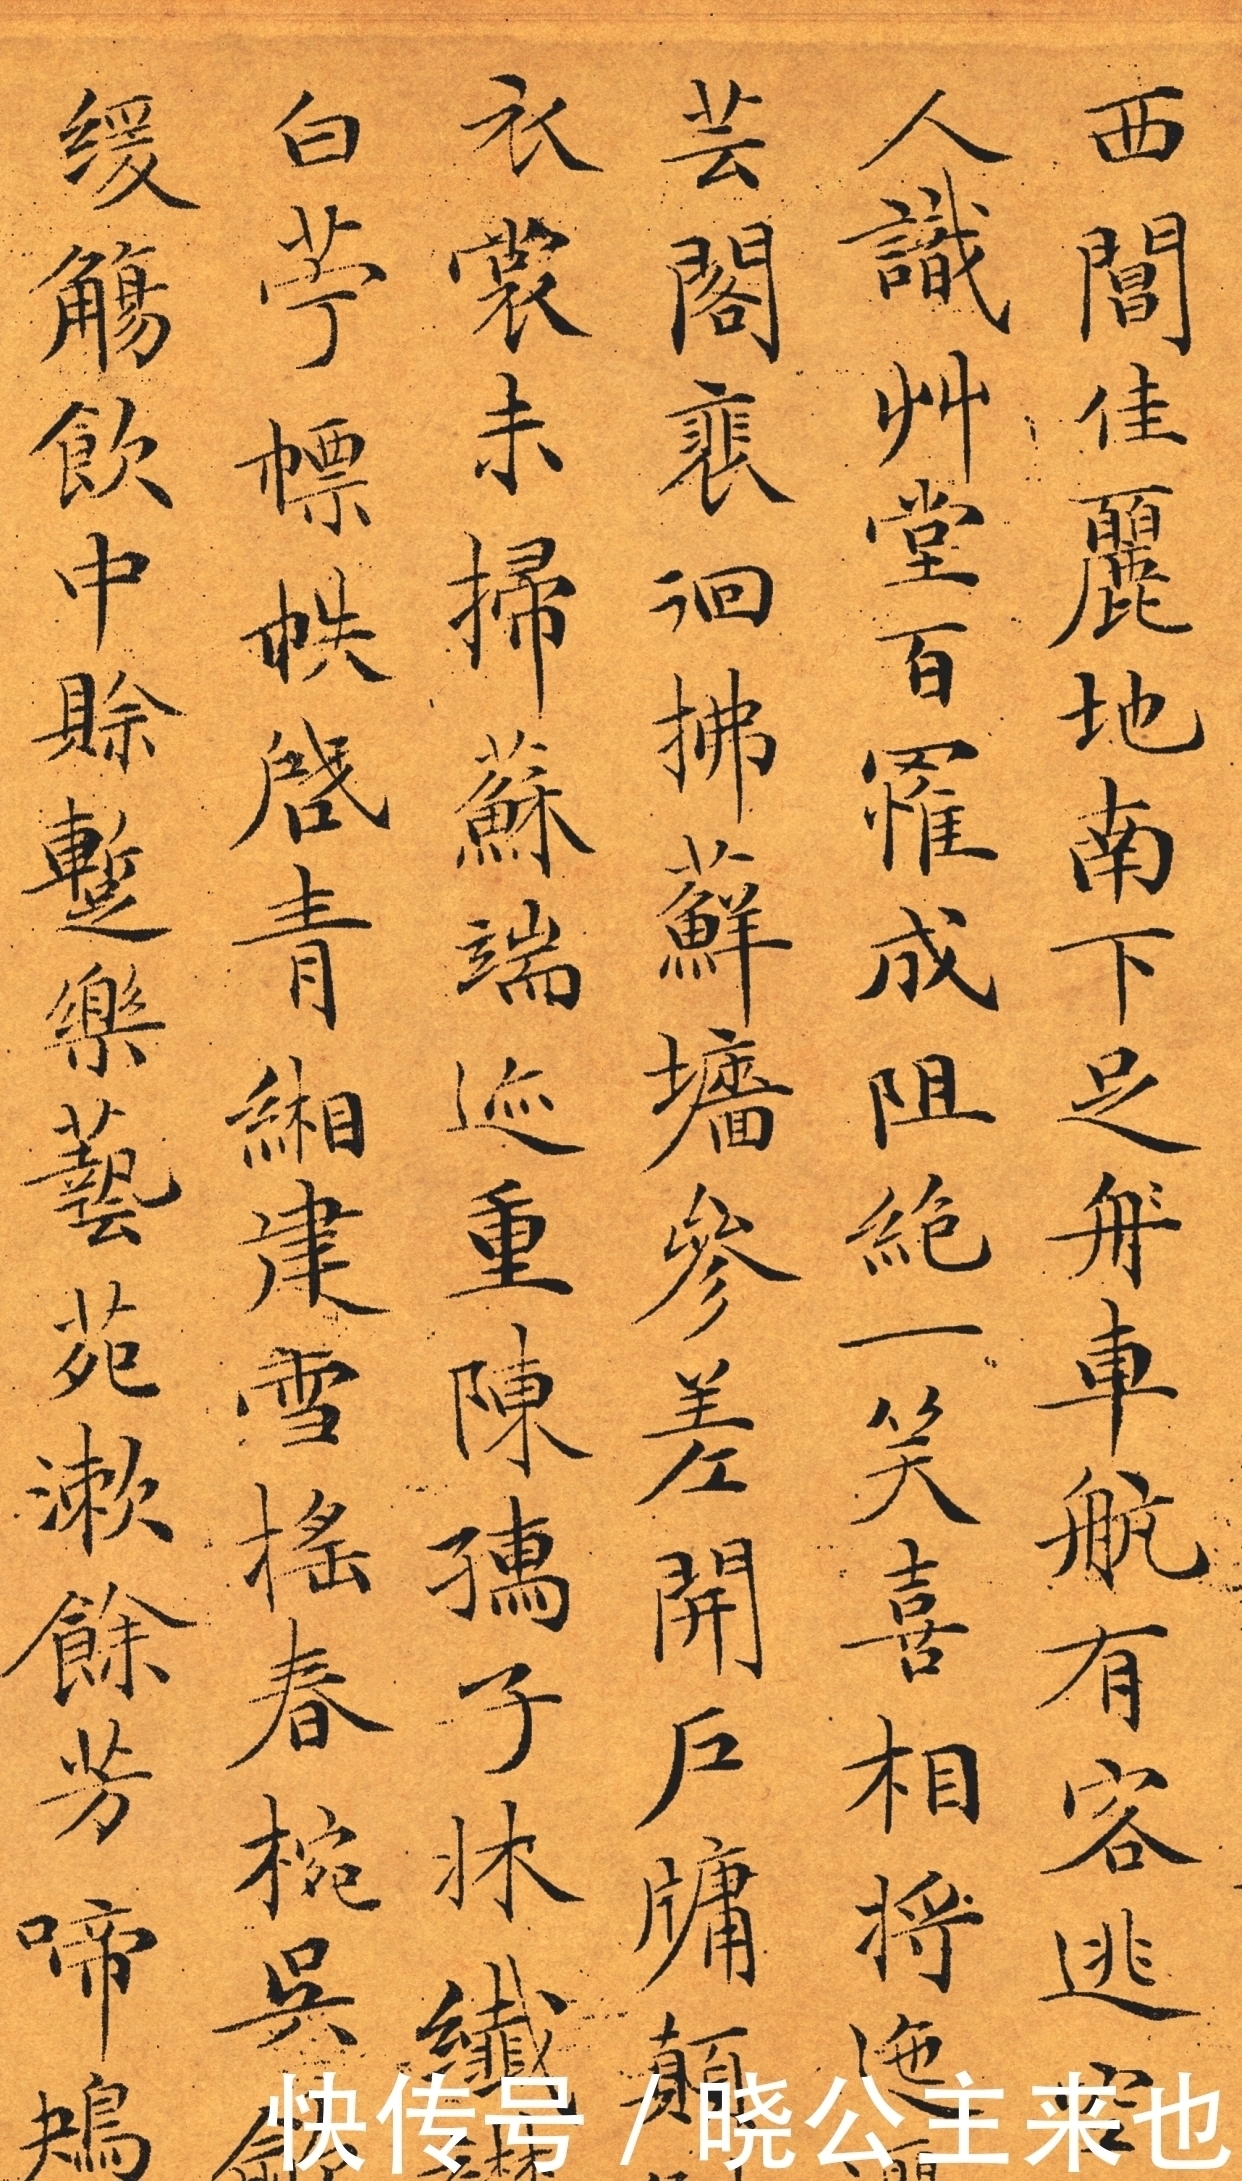 西閶佳麗地南下足舟車航有客逃空
人識艸堂百罹成阻絶一笑喜相將迤邐
芸閣裴徊拂蘚墻參差開戶牖顛
衣裳未掃蘇端迹重陳孺子牀纖
白苧幖帙啓青緗建雪搖春椀吳
缓觴飲中賒蹔樂藝苑漱餘芳啼鴂
快传号 / 晓公主来也